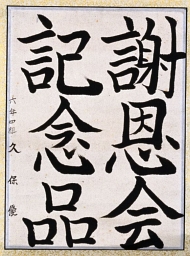 謝恩会
記念品
六年四組 久保優